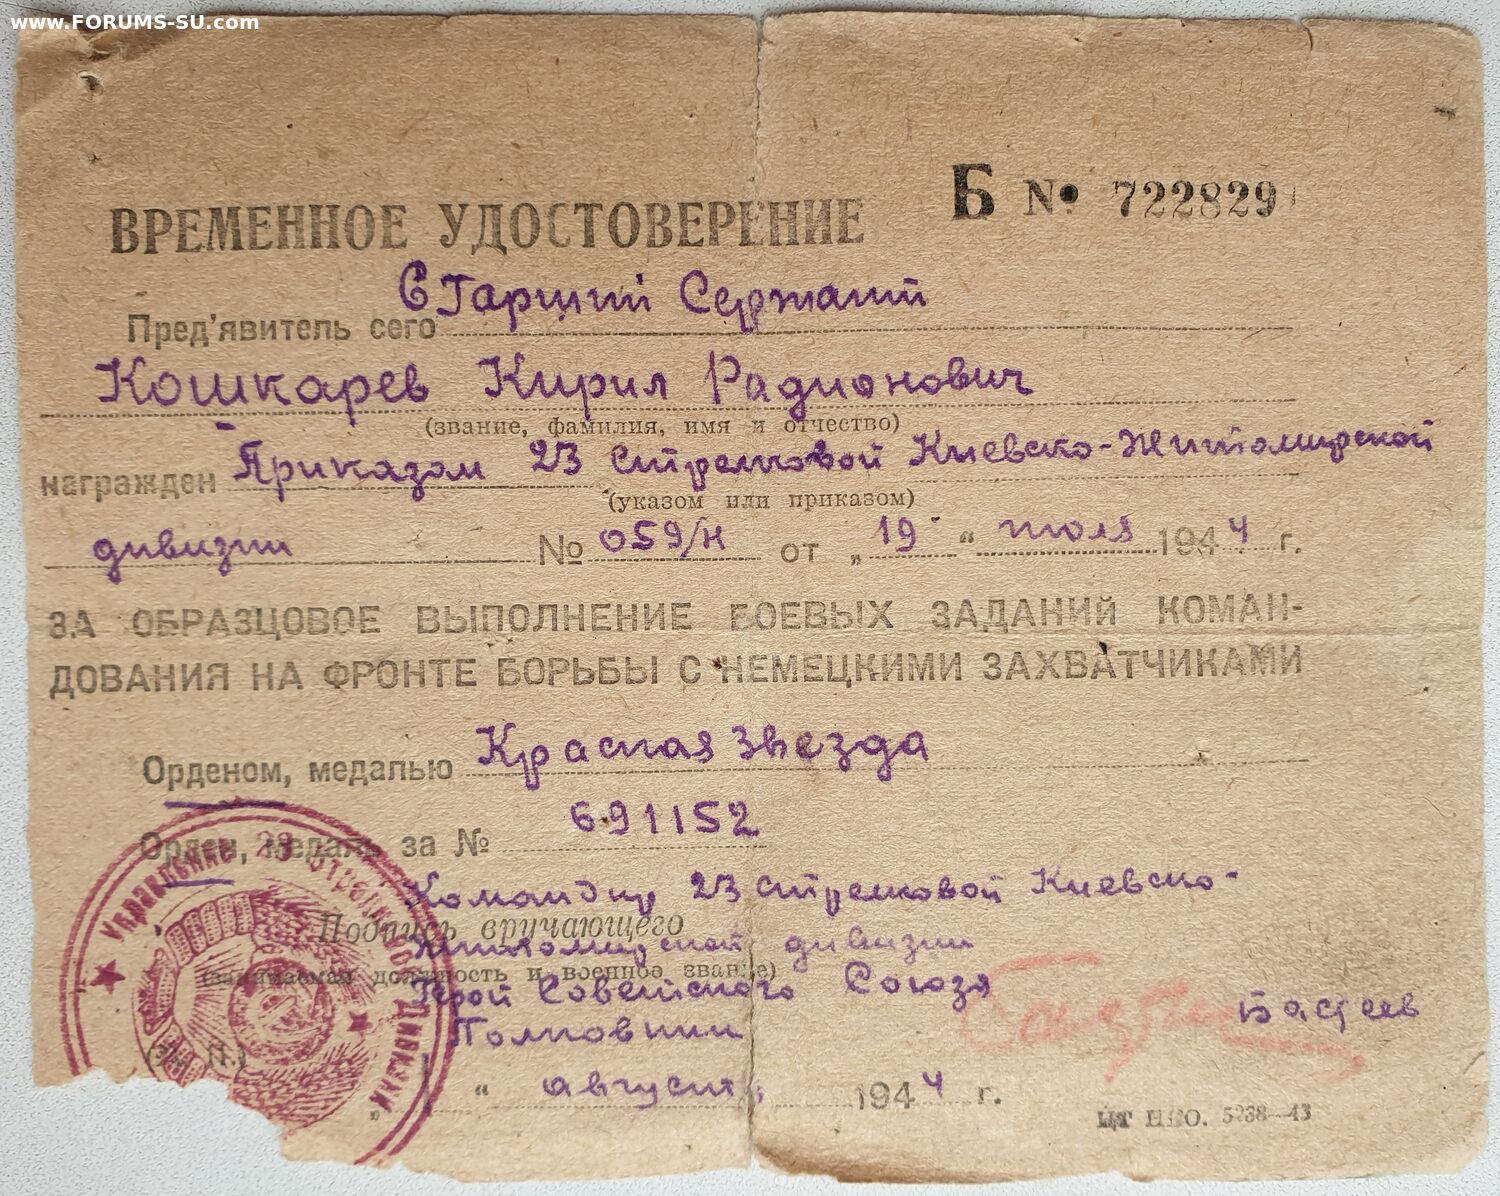 www.FORUMS-SU.com
Б № 722829
ВРЕМЕННОЕ УДОСТОВЕРЕНИЕ
Старший Сержант
Пред'явитель сего
Кошкарев Кирил Радионович
(звание, фамилия, имя и отчество)
награжден Приказом 23 стрелковой Киевско-Житомирской
(указом или приказом)
дивизии № 059/н от „19“ июля 1944 г.
ЗА ОБРАЗЦОВОЕ ВЫПОЛНЕНИЕ БОЕВЫХ ЗАДАНИЙ КОМАН-
ДОВАНИЯ НА ФРОНТЕ БОРЬБЫ С НЕМЕЦКИМИ ЗАХВАТЧИКАМИ
Орденом, медалью Красная Звезда
Орден, медаль за № 691152
Командир 23 стрелковой Киевско-
Подпись вручающего
Житомирской дивизии
(занимаемая должность и военное звание)
Герой Советского Союза
Полковник Бастеев
(М. П.)
„ “ август 1944 г.
Управление 23 Стрелковой Дивизии
5238—43